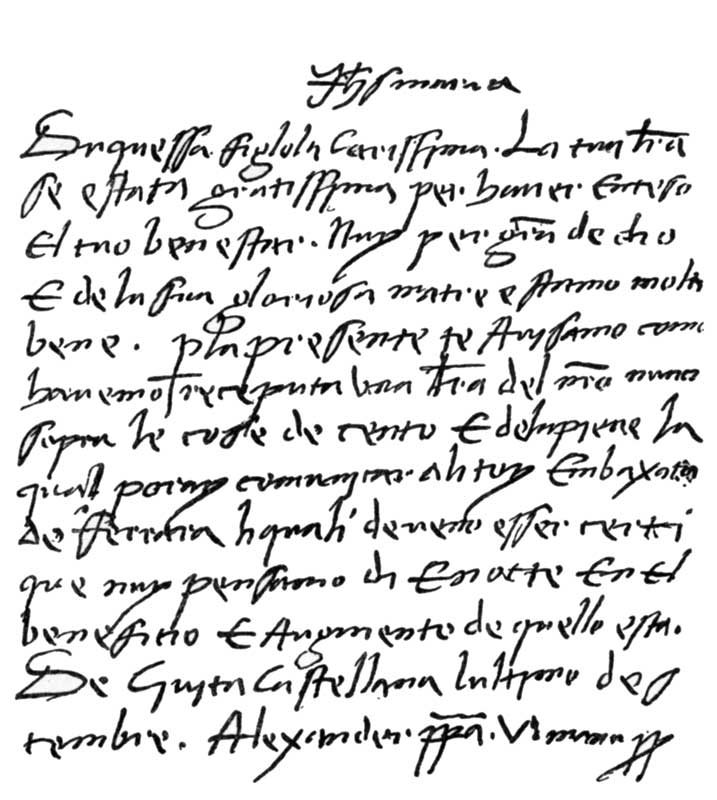 Jhs maria
Duquessa figlola Carissima. La tua lra
se e stata gratissima per. haver. Enteso
El tuo benestar. Nuy per. gra de dio
E de la sua gloriosa matre e stamo molto
bene. p la presente te Avysamo como
havemo receputa una lra del nro nunci
sopra le cose de cento E de la pieve la
qual poray comunycar. a li toy Embaxatori
de ferrara li quali deveno esser. certi
que nuy pensamo di E nocte En El
beneficio E Augmento de quello esta.
De Cyvita Castellana l ultimo de s
tembre. Alexander. ppa. VI manu pp